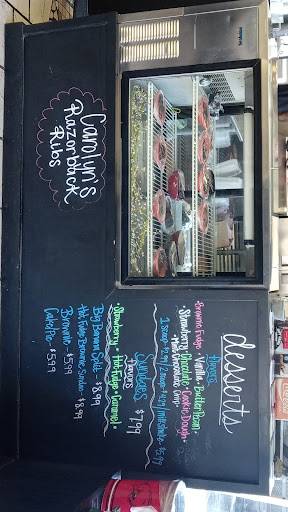 Carolyn's
Razorback
Ribs
desserts
flavors
Brownie Fudge • Vanilla • Butter Pecan •
• Strawberry • Chocolate • Cookie Dough •
• Mint Chocolate Chip •
1 Scoop
Sundaes $7.99
flavors
• Strawberry • Hot Fudge • Caramel •
Big Banana Split - $8.99
Hot Fudge Brownie Sundae $8.99
Brownie $5.99
Cake Pie $5.99